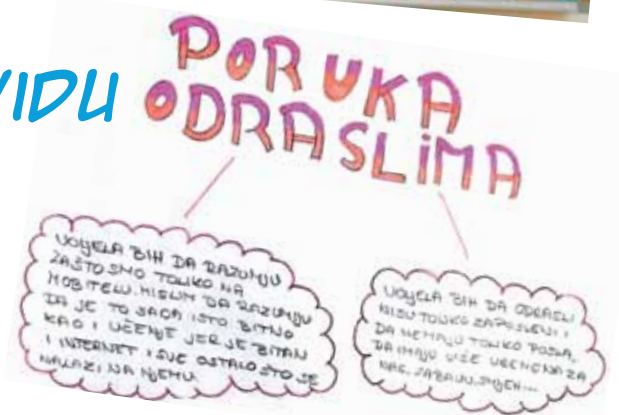 VIDU
PORUKA
ODRASLIMA
VOLJELA BIH DA RAZUMIJU
ZAŠTO SMO TOLIKO NA
MOBITELU. MISLIM DA RAZUMIJU
DA JE TO SADA ISTO BITNO
KAO I UČENJE JER JE BITAN
I INTERNET I SVE OSTALO ŠTO SE
NALAZI NA NJEMU.
VOLJELA BIH DA ODRASLI
NISU TOLIKO ZAPOSLENI I
DA NEMAJU TOLIKO POSLA,
DA IMAJU VIŠE VREMENA ZA
NAS, ZABAVU, SMIJEH...